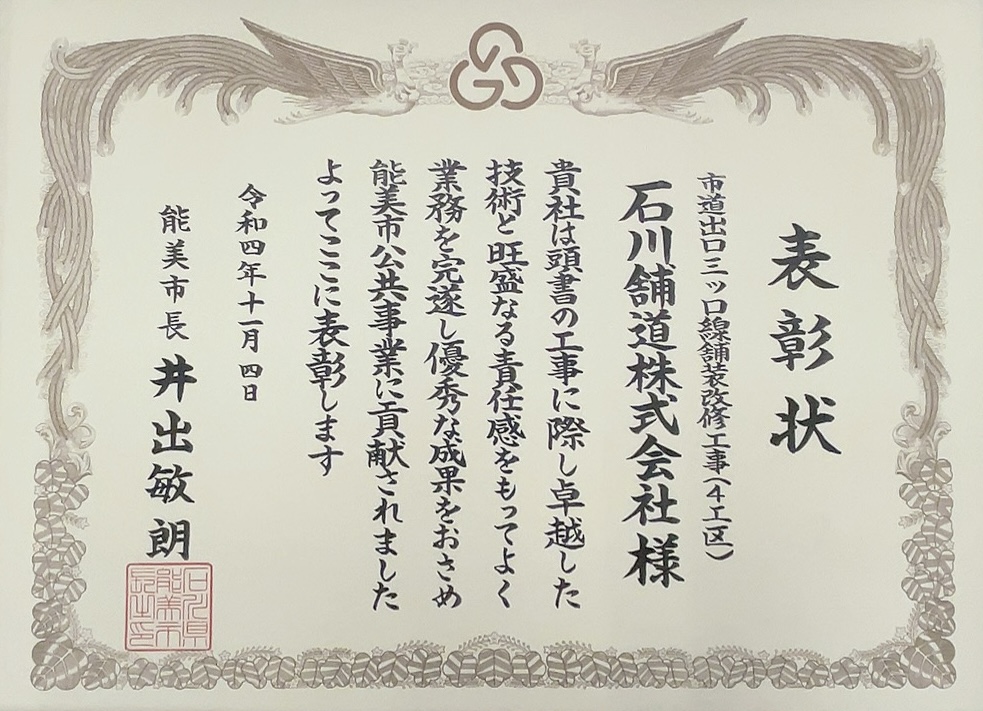 表彰状
市道出口三ッ口線舗装改修工事(4工区)
石川舗道株式会社様
貴社は頭書の工事に際し卓越した
技術と旺盛なる責任感をもってよく
業務を完遂し優秀な成果をおさめ
能美市公共事業に貢献されました
よってここに表彰します
令和四年十一月四日
能美市長 井出敏朗
石川県
能美市
長之印